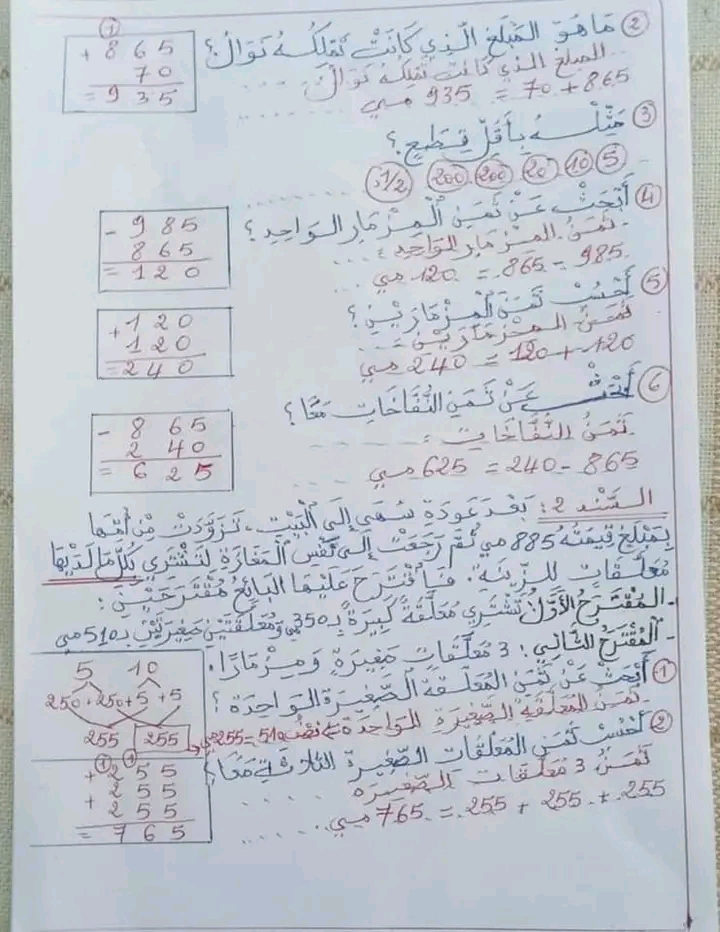 ② مَا هُوَ المَبْلَغُ الَّذِي كَانَتْ تَمْلِكُهُ نَوَالُ؟
المبلغ الذي كانت تملكه نوال
865 + 70 = 935 مي
①
+ 865
70
= 935
③ مَثِّلْهُ بِأَقَلِّ قِطَعٍ؟
⑤ ⑩ 20 200 200 1/2
④ أَبْحَثُ عَنْ ثَمَنِ الْمِزْمَارِ الوَاحِدِ؟
ثمن المزمار الواحد:
985 - 865 = 120 مي
- 985
865
= 120
⑤ أَحْسُبُ ثَمَنَ الْمِزْمَارَيْنِ؟
ثمن المزمارين:
120 + 120 = 240 مي
+ 120
120
= 240
⑥ أَبْحَثُ عَنْ ثَمَنِ النُّفَّاخَاتِ مَعًا؟
ثمن النُّفَّاخَات:
865 - 240 = 625 مي
- 865
240
= 625
السّند 2: بَعْدَ عَوْدَةِ سُهَى إِلَى الْبَيْتِ، تَزَوَّدَتْ مِنْ أُمِّهَا
بِمَبْلَغٍ قِيمَتُهُ 885 مي ثُمَّ رَجَعَتْ إِلَى نَفْسِ الْمَغَازَةِ لِتَشْتَرِيَ بِكُلِّ مَا لَدَيْهَا
مُعَلَّقَاتٍ لِلزِّينَةِ. فَاقْتَرَحَ عَلَيْهَا البَائِعُ مُقْتَرَحَيْنِ:
- المُقْتَرَحُ الأَوَّلُ: تَشْتَرِي مُعَلَّقَةً كَبِيرَةً بِـ 350 مي وَمُعَلَّقَتَيْنِ صَغِيرَتَيْنِ بـ 510 مي
- الْمُقْتَرَحُ الثَّانِي: 3 مُعَلَّقَاتٍ صَغِيرَةٍ وَمِزْمَارًا.
① أَبْحَثُ عَنْ ثَمَنِ المُعَلَّقَةِ الصَّغِيرَةِ الوَاحِدَةِ؟
ثمن المعلقة الصغيرة الواحدة = نصف 510 = 255 مي
5 10
250 + 250 + 5 + 5
255 255
② أَحْسُبُ ثَمَنَ المُعَلَّقَاتِ الصَّغِيرَةِ الثَّلَاثَةِ مَعًا؟
ثمن 3 معلقات الصغيرة
255 + 255 + 255 = 765 مي
① ①
+ 255
+ 255
255
= 765